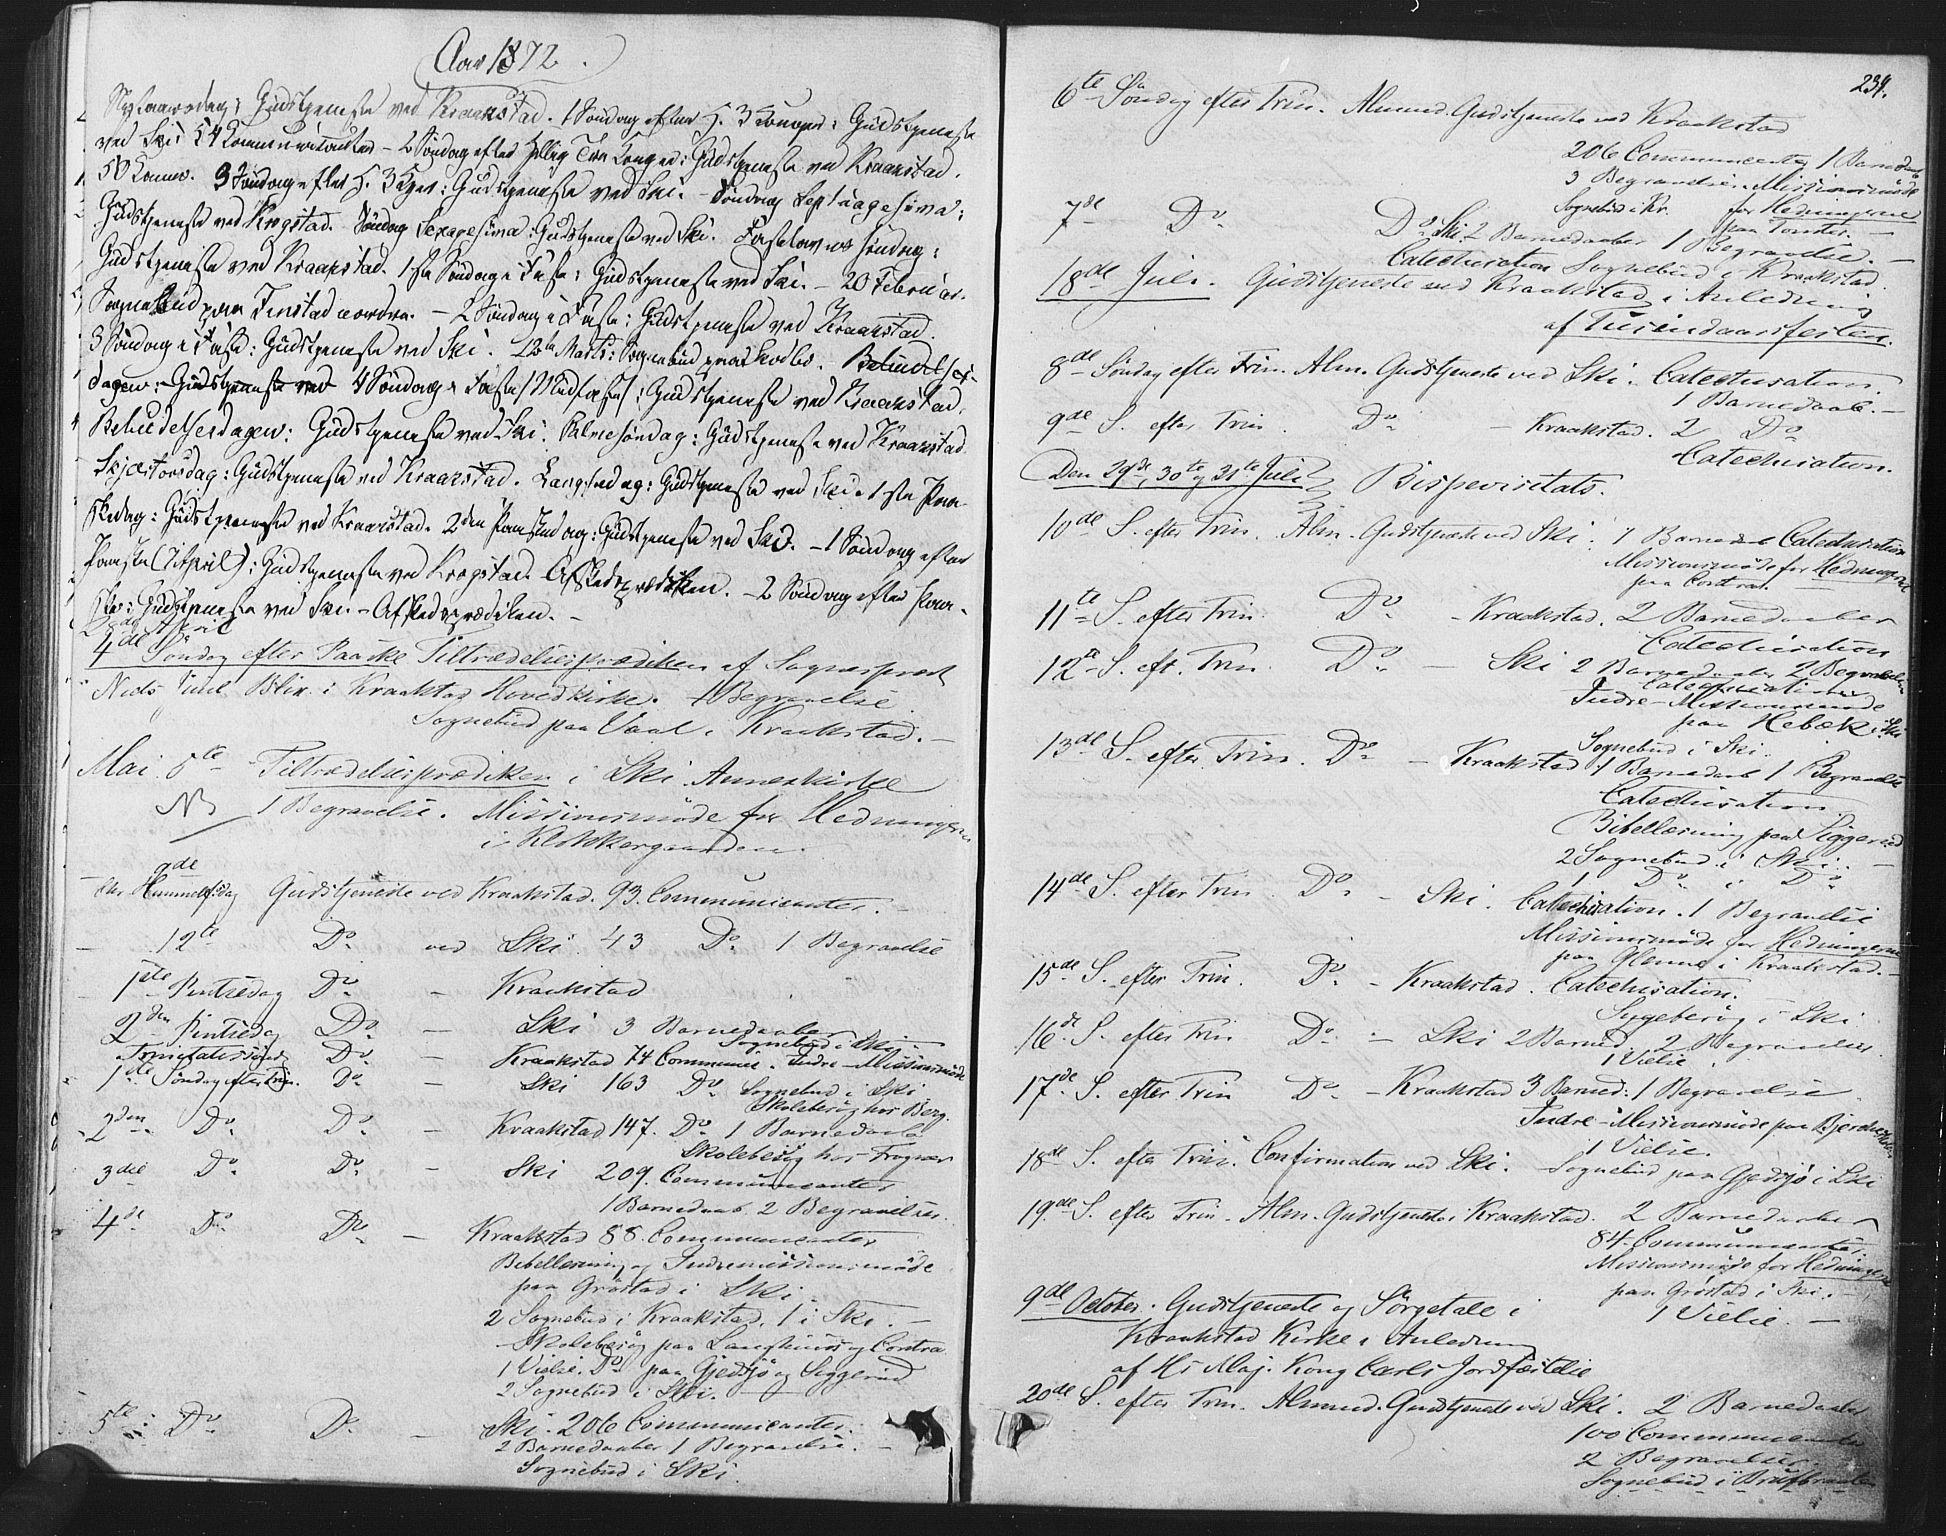 Aar 1872.
Nytaarsdag: Gudstjeneste ved Kraakstad. 1 Søndag efter H. 3 Konger: Gudstjeneste
ved Ski 54 Communicanter – 2 Søndag efter Hellig Tre Konger: Gudstjeneste ved Kraakstad.
50 Comm. 3 Søndag efter H. 3 Kger: Gudstjeneste ved Ski. – Søndag Septuagesima:
Gudstjeneste ved Krogstad. Søndag Sexagesima: Gudstjeneste ved Ski. Fastelavns Søndag:
Gudstjeneste ved Kraakstad. 1ste Søndag i Faste: Gudstjeneste ved Ski. – 20 Februar.
Sognebud paa Finstad nordre. – 2 Søndag i Faste: Gudstjeneste ved Kraakstad.
3 Søndag i Faste: Gudstjeneste ved Ski. 12te Marts: Sognebud paa Skodbo. Bebudelses-
dagen: Gudstjeneste ved 4 Søndag i Faste (Midfaste): Gudstjeneste ved Kraakstad.
Bebudelsesdagen: Gudstjeneste ved Ski. Palmesøndag: Gudstjeneste ved Kraakstad.
Skjærtorsdag: Gudstjeneste ved Kraakstad. Langfredag: Gudstjeneste ved Ski. 1ste Paa-
skedag: Gudstjeneste ved Kraakstad. 2den Paaskedag: Gudstjeneste ved Ski. – 1 Søndag efter
Paaske (7 April): Gudstjeneste ved Krogstad. Afskedsprædiken. – 2 Søndag efter Paa-
ske: Gudstjeneste ved Ski. – Afskedsprædiken. –
28de April
4de Søndag efter Paaske Tiltrædelsesprædiken af Sognepræst
Niels Juul Blix i Kraakstad Hovedkirke. 1 Begravelse.
Sognebud paa Vaal i Kraakstad. –
Mai 5te Tiltrædelsesprædiken i Ski Annexkirke
NB 1 Begravelse. Missionsmøde for Hedningerne
i Klokkergaarden.
9de
Chr Himmelfsdag Gudstjeneste ved Kraakstad. 93. Communicanter.
– 12te Do ved Ski. 43 Do 1 Begravelse
1ste Pintsedag Do – Kraakstad
2den Pintsedag Do – Ski 3 Barnedaaber
Sognebud i Ski –
Trinitatissønd. Do – Kraakstad 74 Communic. Indre-Missionsmøde
1ste Søndag efter Trin. Do – Ski 163 Do Sognebud i Ski
Skolebesøg hos Berg.
2den Do Do – Kraakstad 147. Do 1 Barnedaab
Skolebesøg hos Frogner
3die Do Do – Ski 209. Communicanter
1 Barnedaab. 2 Begravelser.
4de Do Do – Kraakstad 88. Communicanter
Bibellæsning og Indremissionsmøde
paa Grøstad i Ski.
2 Sognebud i Kraakstad. 1 i Ski. –
Skolebesøg paa Langhuus og Contra
1 Vielse. Do paa Gjedsjø og Siggerud
2 Sognebud i Ski.
5te Do Do Ski. 206 Communicanter.
2 Barnedaaber 1 Begravelse. –
Sognebud i Ski.
234.
6te Søndag efter Trin. Almind. Gudstjeneste ved Kraakstad
206 Communicanter 1 Barnedaab
3 Begravelser. Missionsmøde
Sognebud i Kr. for Hedningerne
paa Tomter. –
7de Do Do Ski. 2 Barnedaaber 1 Begravelse. –
Catechisation Sognebud i Kraakstad.
18de Juli. Gudstjeneste ved Kraakstad i Anledning
af Tusindaarsfesten.
8de Søndag efter Trin. Alm. Gudstjeneste ved Ski. Catechisation
1 Barnedaab. –
9de S. efter Trin. Do – Kraakstad. 2 Do
Catechisation.
Den 29de, 30te og 31te Juli Bispevisitats.
10de S. efter Trin. Alm. Gudstjeneste ved Ski. 1 Barnedaab Catechisation
Missionsmøde for Hedningerne
paa Contra.
11te S. efter Trin. Do – Kraakstad. 2 Barnedaaber
Catechisation
12te S. eft. Trin. Do – Ski 2 Barnedaaber 2 Begravelser
Catechisation
Indre-Missionsmøde
paa Hebæk i Ski
Sognebud i Ski.
13de S. efter Trin. Do – Kraakstad 1 Barnedaab 1 Begravelse
Catechisation
Bibellæsning paa Siggerud
2 Sognebud i Ski. –
1 Do i Do
14de S. efter Trin. Do – Ski. Catechisation. 1 Begravelse
Missionsmøde for Hedningerne
paa Glenne i Kraakstad. –
15de S. efter Trin. Do – Kraakstad. Catechisation.
Sygebesøg i Ski
16de S. efter Trin Do – Ski 2 Barned. 2 Begravelser.
1 Vielse
17de S. efter Trin Do – Kraakstad 3 Barned: 1 Begravelse.
Indre-Missionsmøde paa Bjerke
1 Vielse.
18de S. efter Trin. Confirmation ved Ski. – Sognebud paa Gjedsjø i Ski
19de S. efter Trin. Alm. Gudstjeneste i Kraakstad. 2 Barnedaaber
84. Communicanter.
Missionsmøde for Hedningerne
paa Grøstad i Ski. –
1 Vielse. –
9de October. Gudstjeneste og Sørgetale i
Kraakstad Kirke i Anledning
af Hs Maj. Kong Carls Jordfæstelse
20de S. efter Trin. Almind. Gudstjeneste ved Ski. 2 Barnedaaber
100 Communicanter
2 Begravelser.
Sognebud i